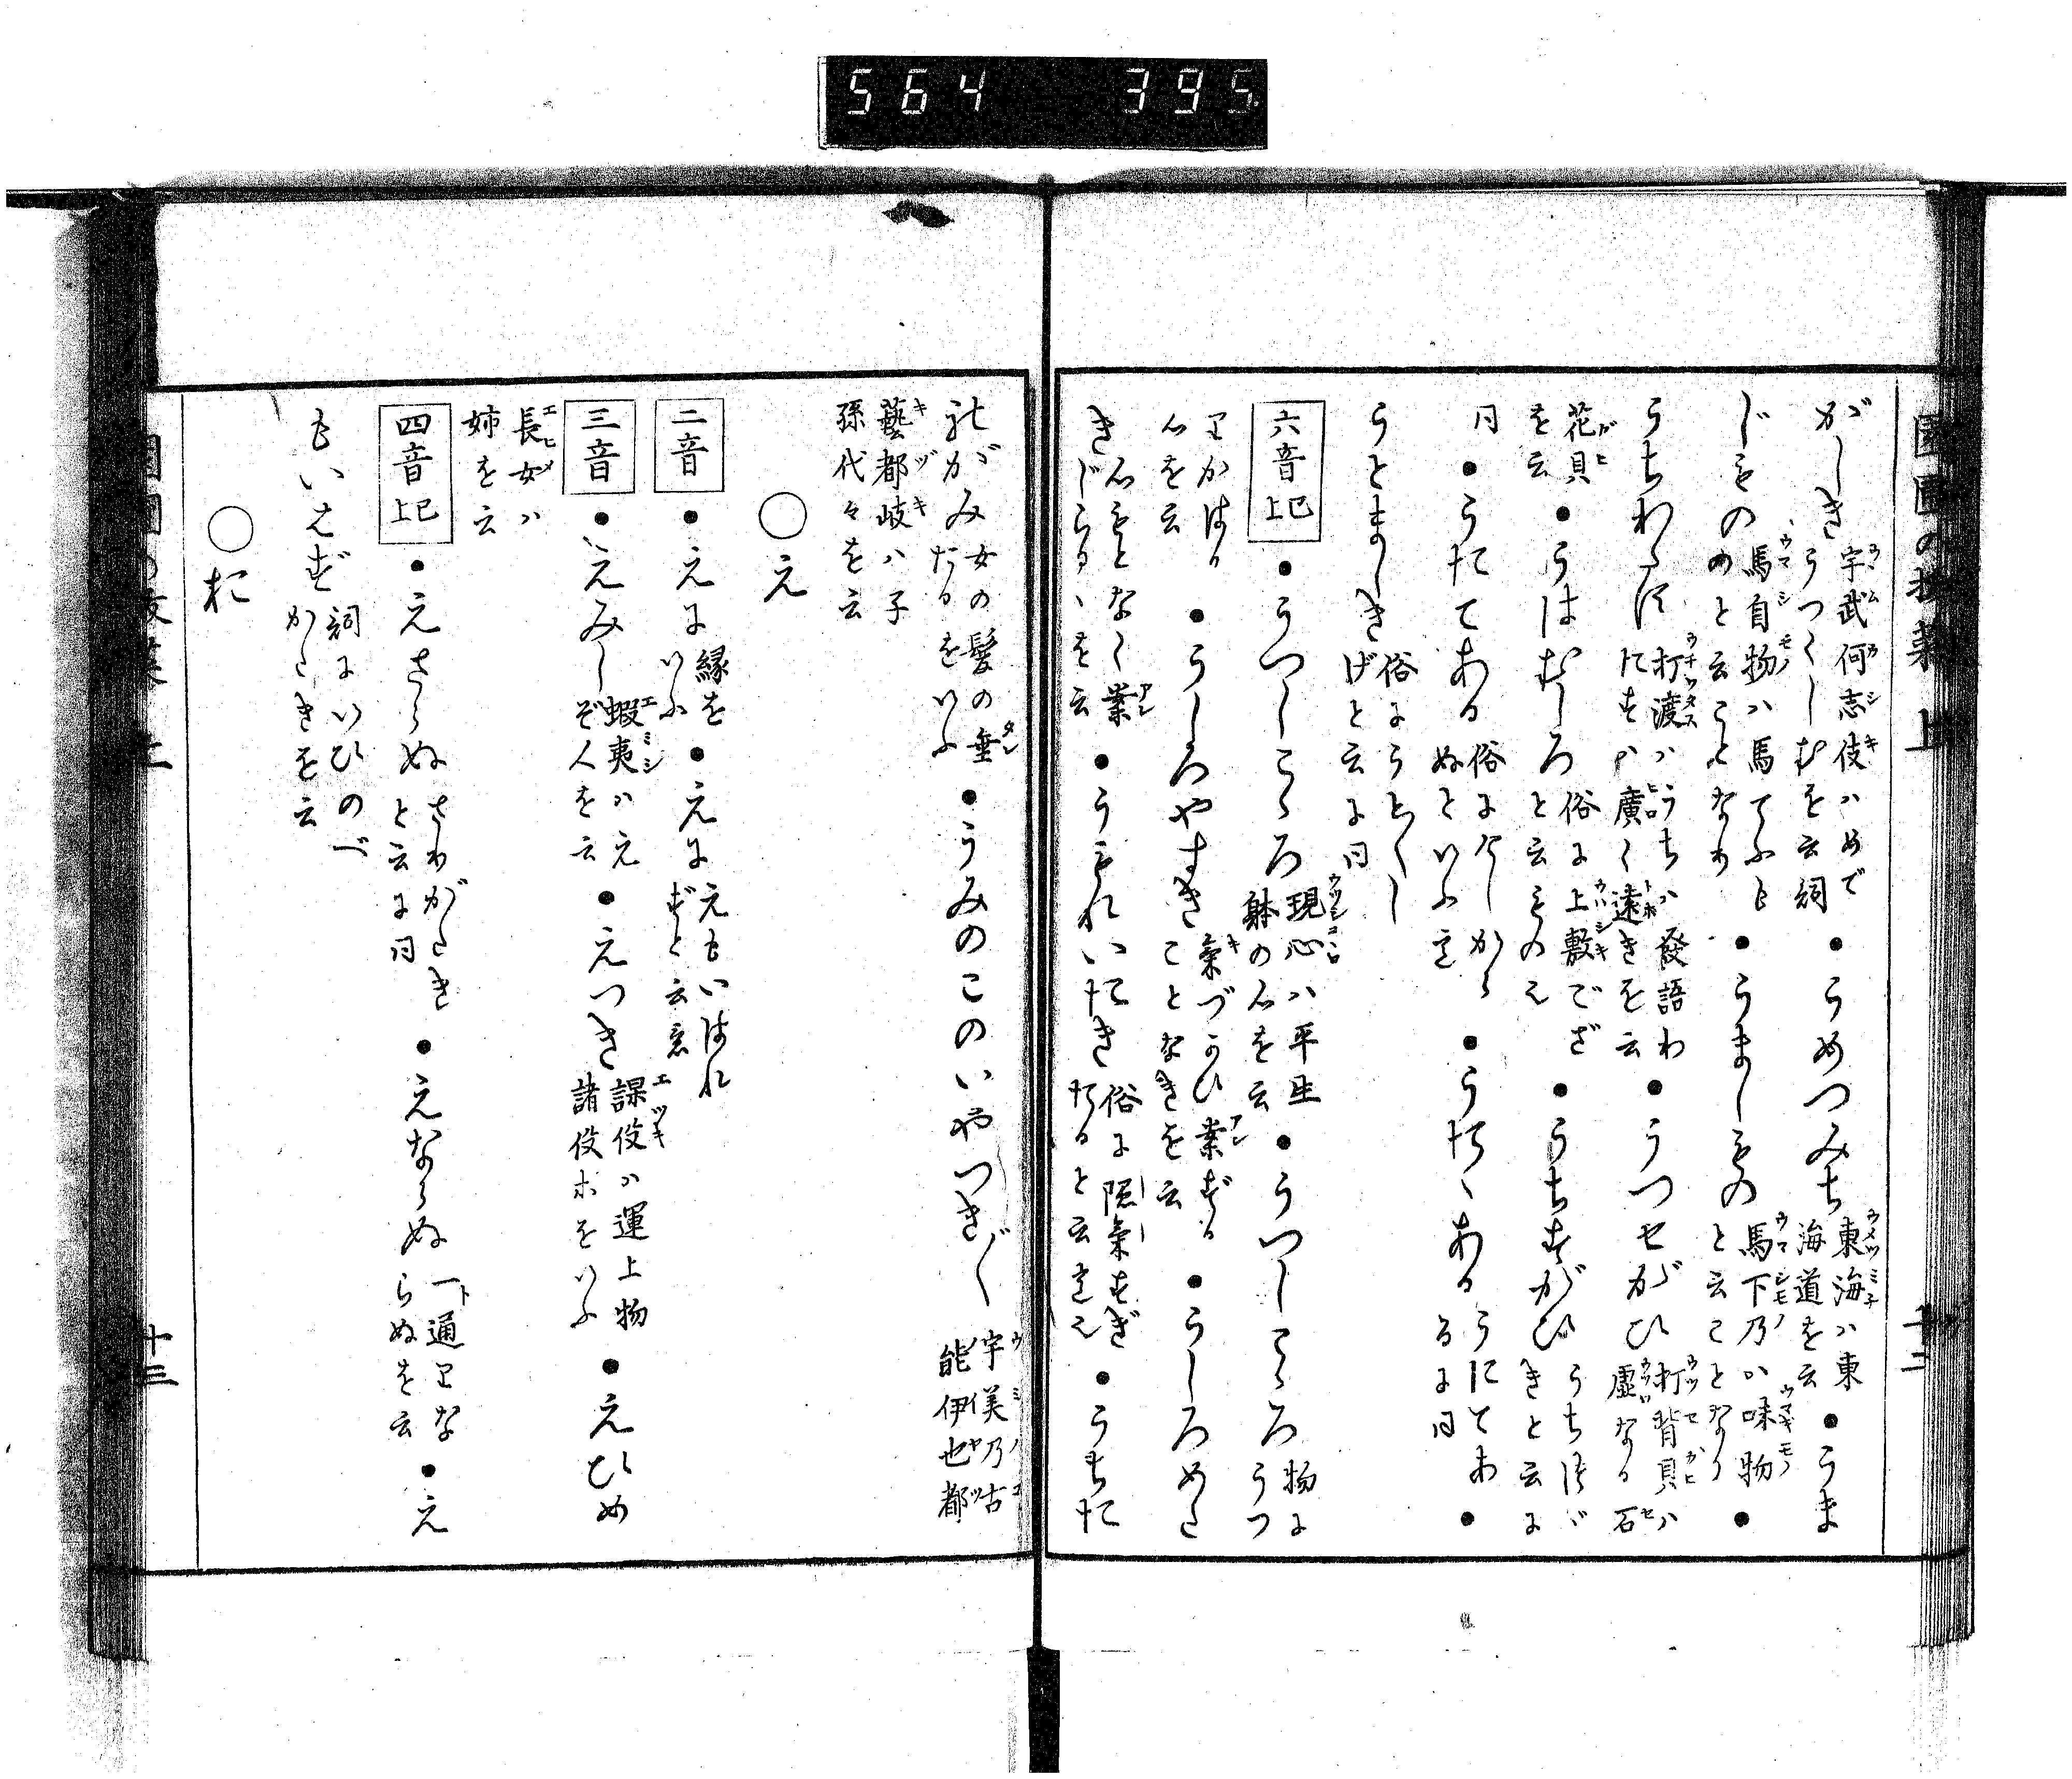 564 395
がしき 宇武何志伎ハめで うつくしむを云詞 ●うめつみち 東海ハ東 海道を云 ●うま
じもの 馬自物ハ馬てふも のと云ことなり ●うましもの 馬下乃ハ味物 と云ことなり ●
うちわたす 打渡ハうちハ發語わ たすハ廣く遠きを云 ●うつせがひ 打背貝ハ 虚なる石
花貝 を云 ●うはむしろ 俗に上敷でざ と云ものえ ●うちすがひ うちつゞ きと云に
同 ●うたてある 俗になしから ぬといふ ●うたゝある うにとあ るに同 ●
うとましき 俗にうとくし げと云に同
六音 已上 ●うつしこゝろ 現心ハ平生 躰の心を云 ●うつしこゝろ 物に うつ
りかはる 心を云 ●うしろやすき 氣づかひ案ずる ことなきを云 ●うしろめた
き 心もとなく案 じらるゝを云 ●うもれいたき 俗に隠氣すぎ たると云 ●うちた
れがみ 女の髪の垂 たるをいふ ●うみのこのいやつぎ〱 宇美乃古 能伊也都
藝都岐ハ子 孫代々を云
○え
二音 ●えに 縁を いふ ●えに えもいはれ ずと云意
三音 ●えみし 蝦夷ハえ ぞ人を云 ●えつき 課伇ハ運上物 諸伇ホをいふ ●えひめ
長女ハ 姉を云
四音 已上 ●えさらぬ さりがたき と云に同 ●えならぬ 一通りな らぬを云 ●え
もいへず 詞にいひのべ がたきを云
○お
十三